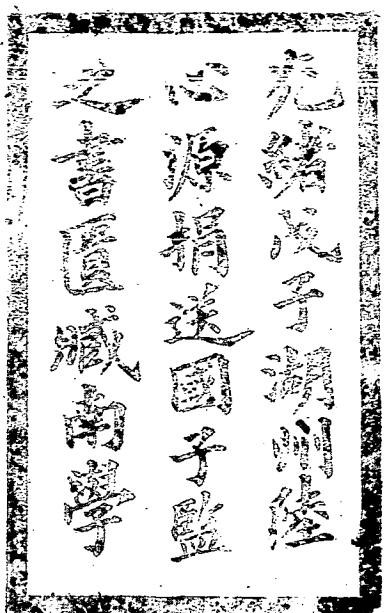 光緒戊子湖州陸
心源捐送國子監
之書匱臧南學